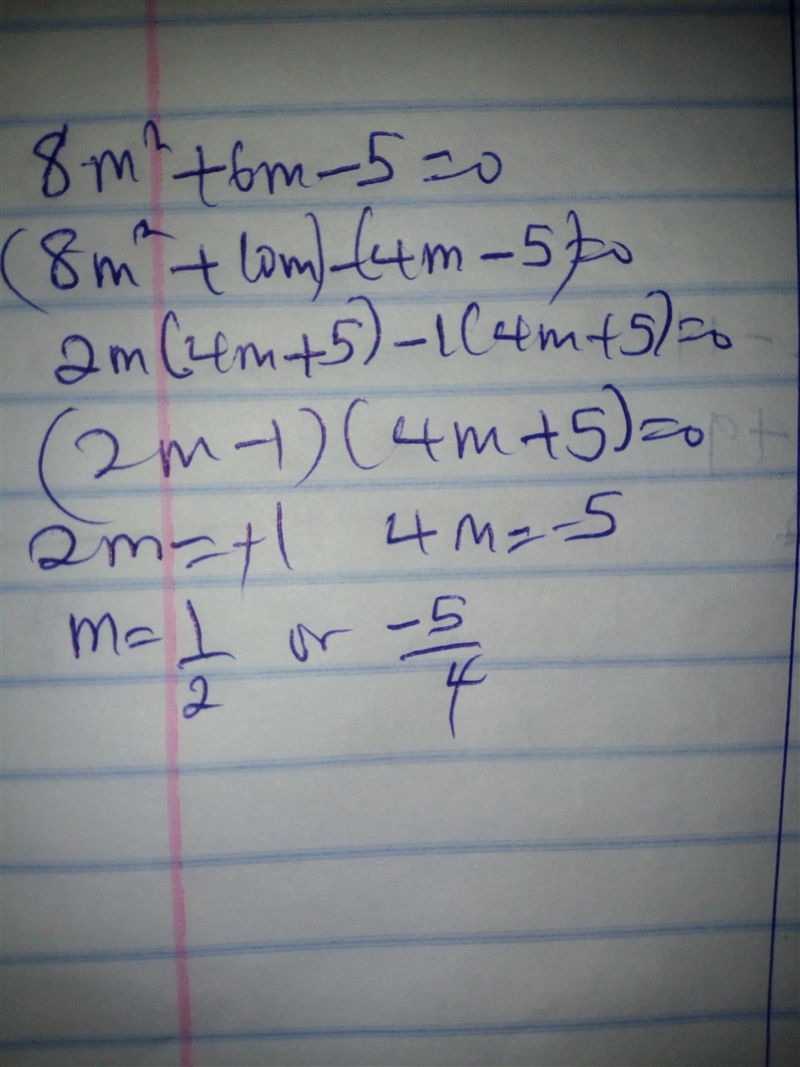 8m² + 6m - 5 = 0
(8m² + 10m) - (4m - 5) = 0
2m(4m + 5) - 1(4m + 5) = 0
(2m - 1)(4m + 5) = 0
2m = +1 4m = -5
m = 1/2 or -5/4